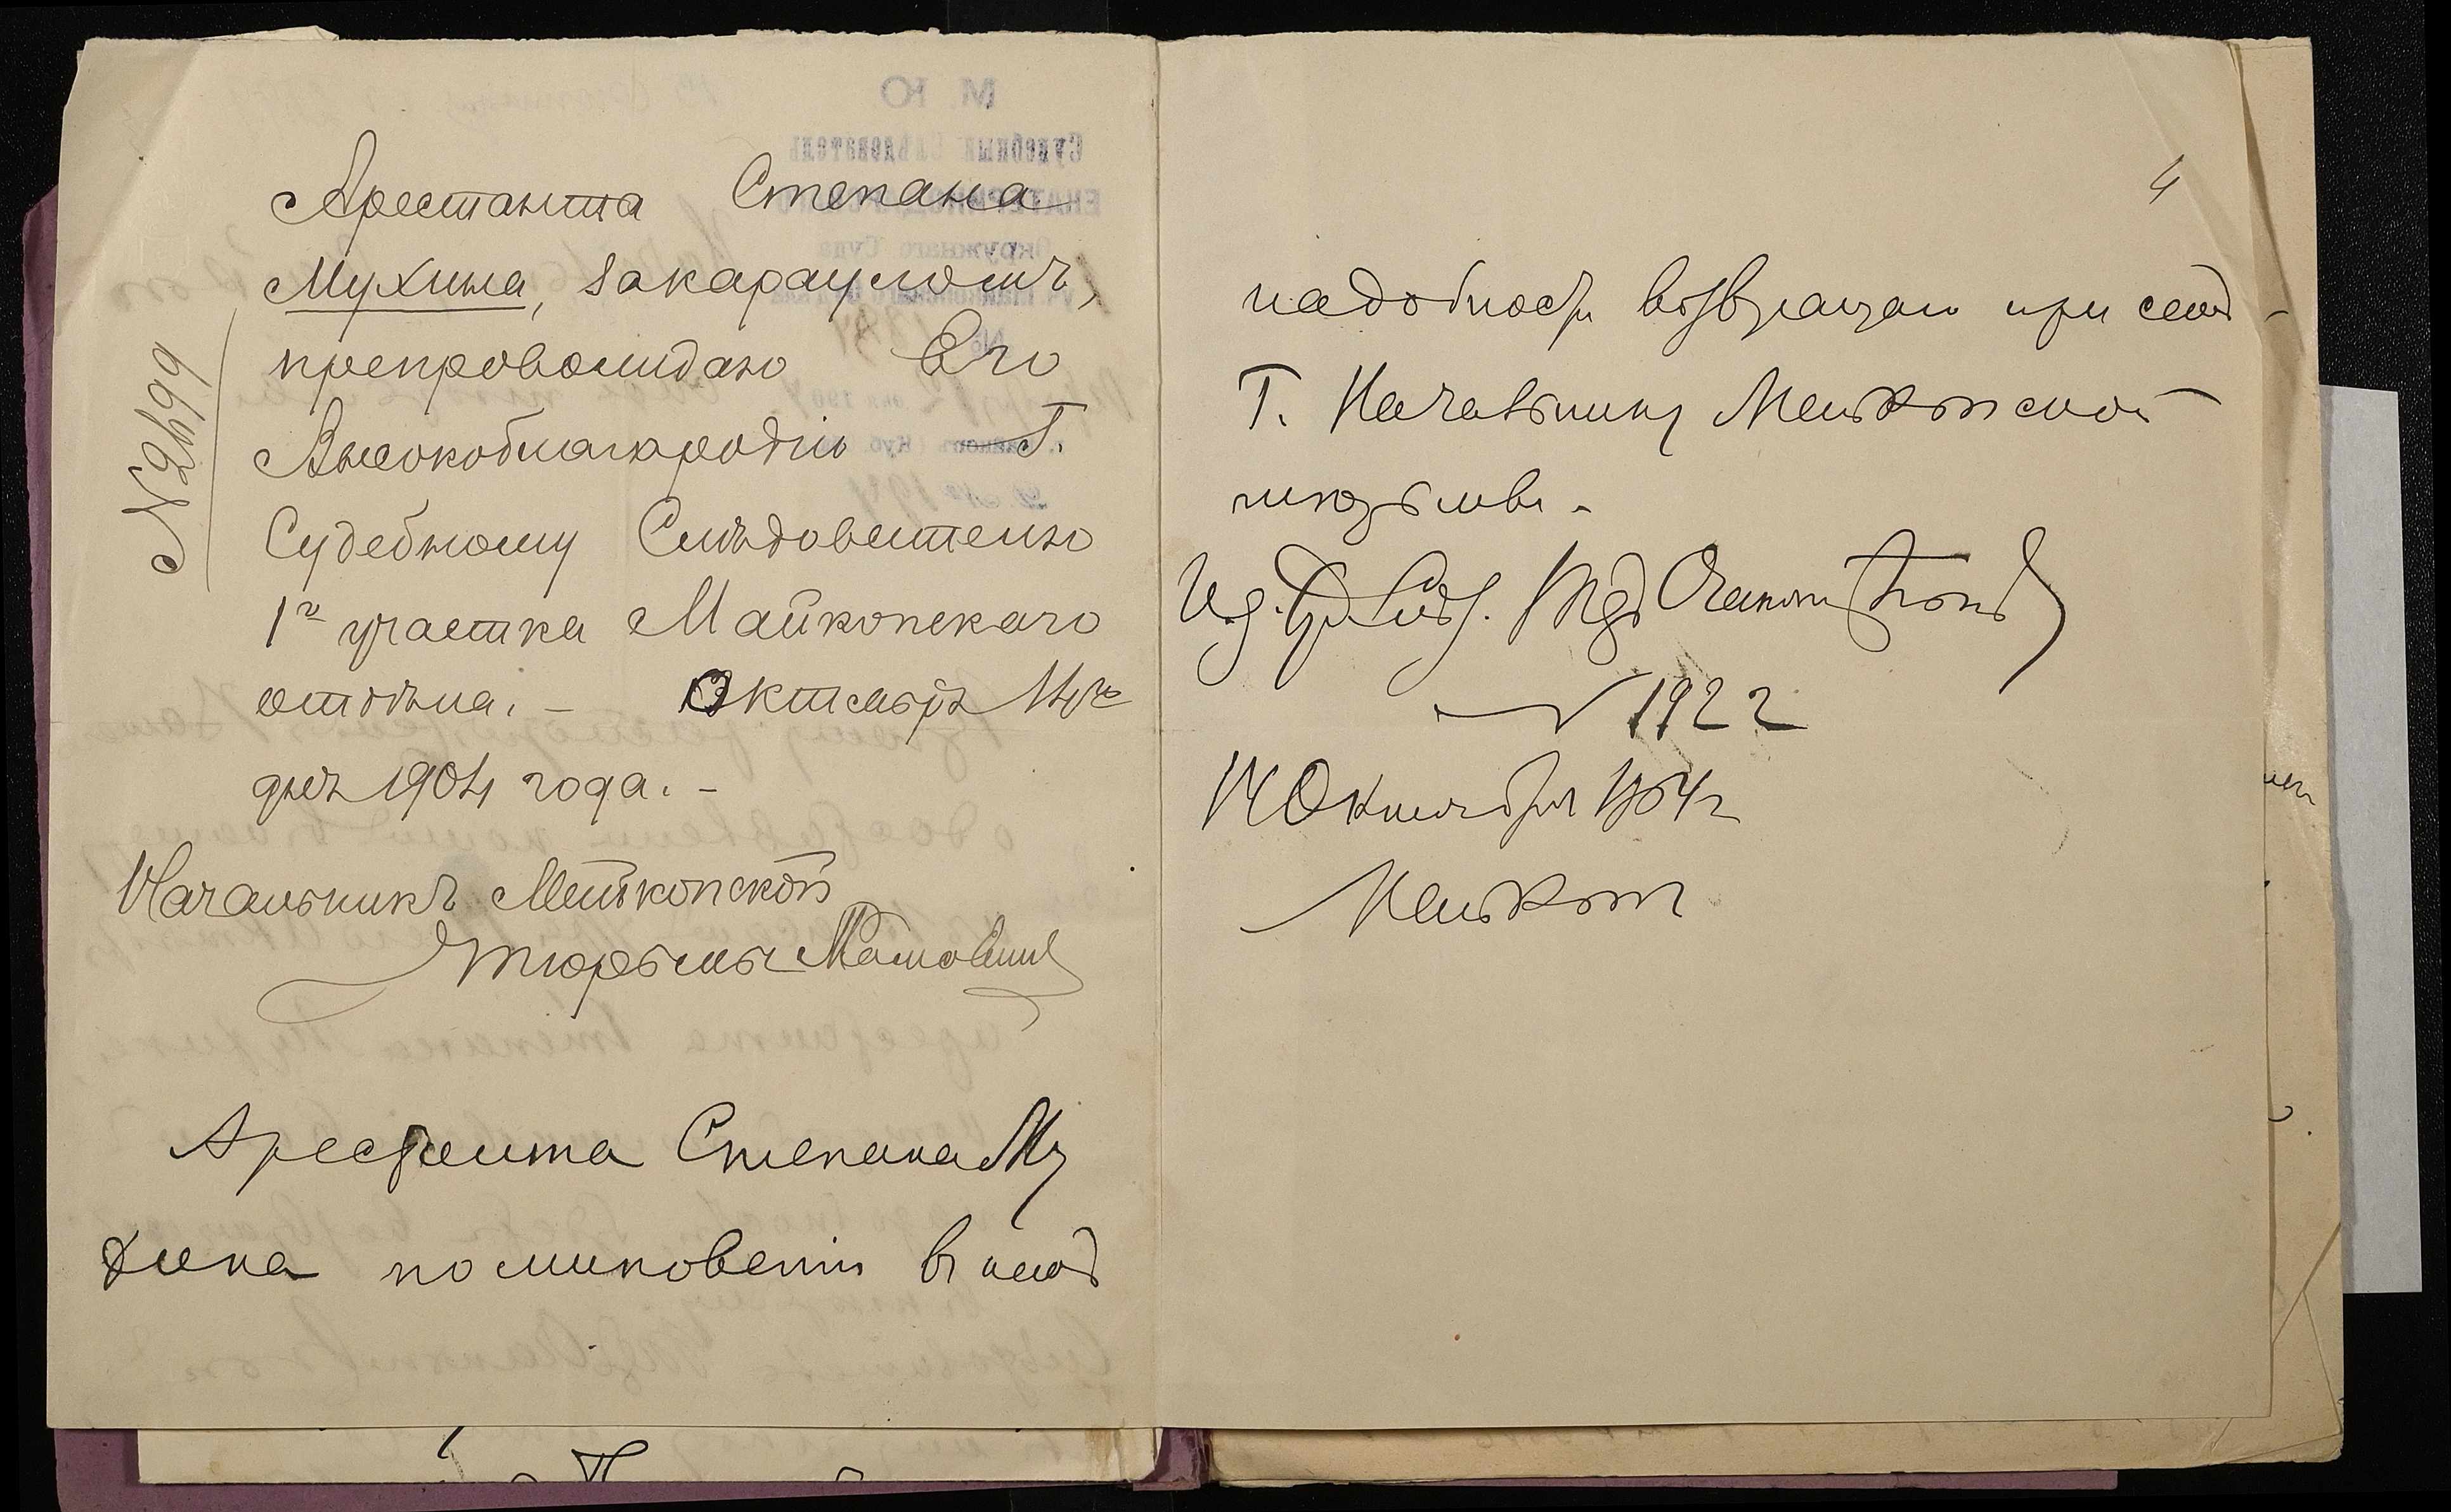 № 2499
Арестанта Степана
Мухина, закарауломъ,
препровождаю Его
Высокоблагородію Г.
Судебному Слѣдователю
1го участка Майкопскаго
отдѣла. – Октября 14го
дня 1904 года. –
Начальникъ Майкопской
тюрьмы
Арестанта Степана Му
хина по миновеніи въ немъ
4
надобности возвращаю при семъ
Г. Начальнику Майкопской
тюрьмы.
И.д. Суд. Слѣд.
№ 1922
14 Октября 1904 г
Майкопъ